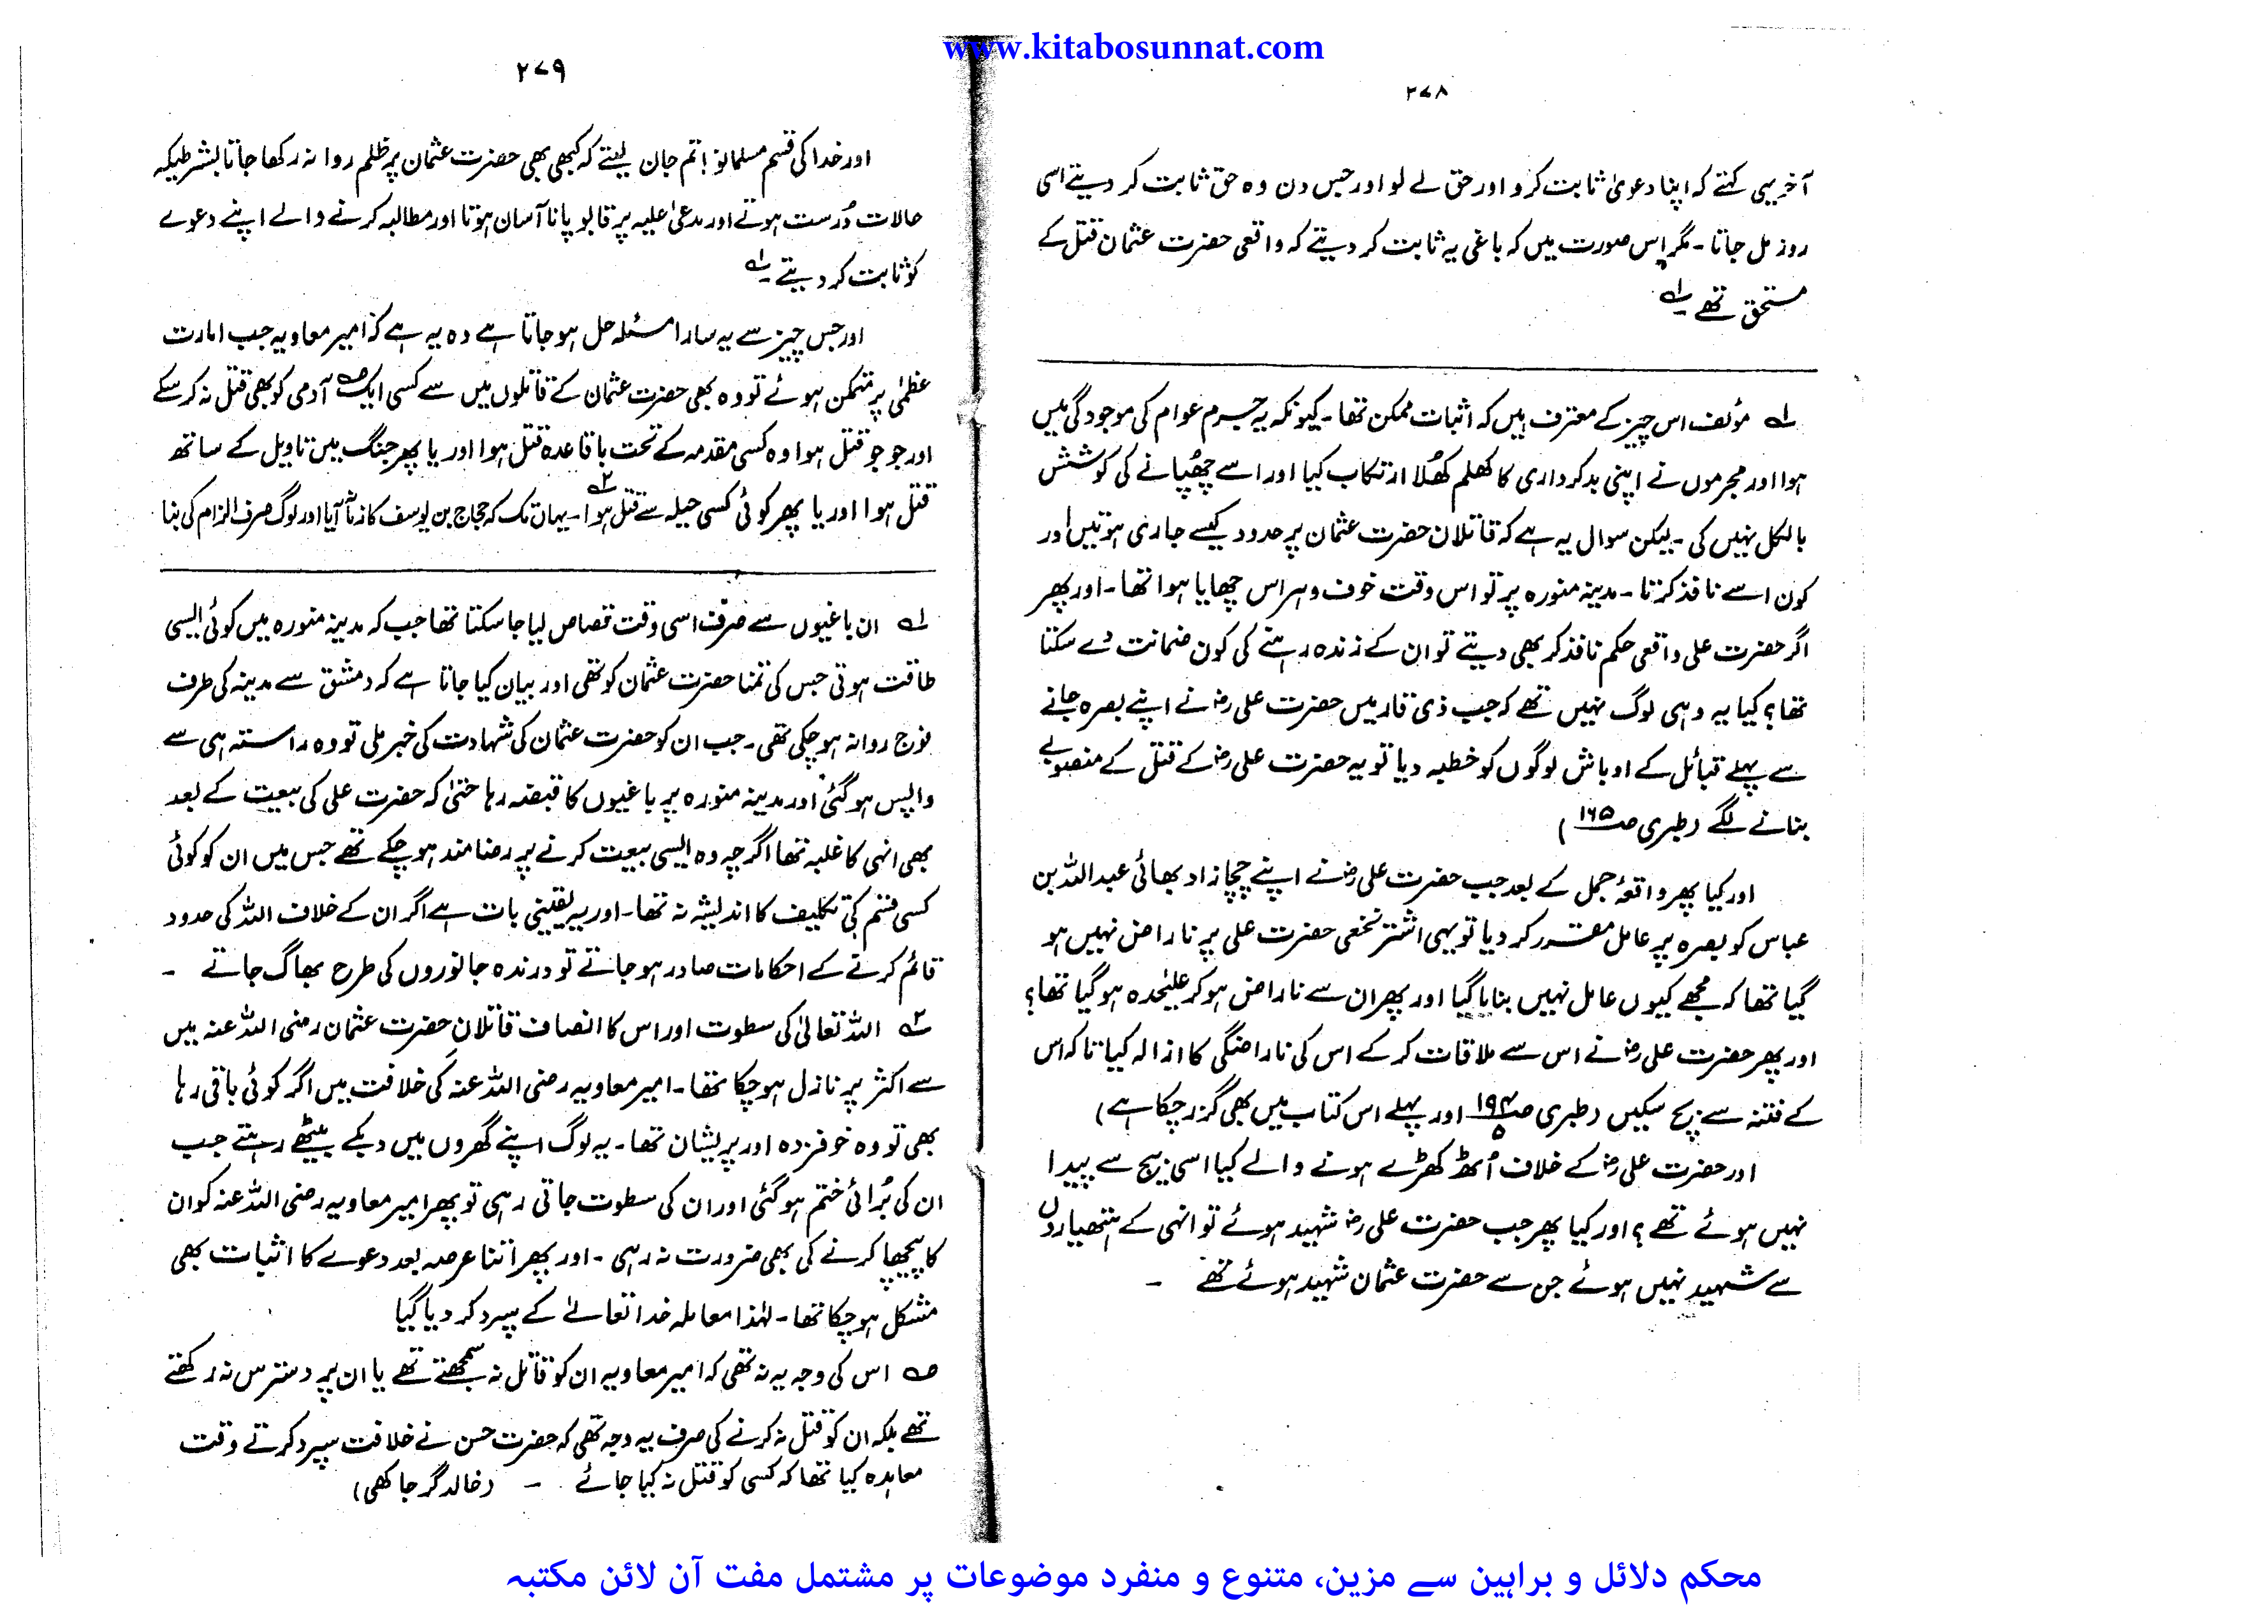 www.kitabosunnat.com
۲۷۸
آخر یہی کہتے کہ اپنا دعویٰ ثابت کرو اور حق لے لو اور جس دن وہ حق ثابت کر دیتے اسی
روز مل جاتا۔ مگر اس صورت میں کہ باغی یہ ثابت کر دیتے کہ واقعی حضرت عثمان قتل کے
مستحق تھے ۱ـہ
۱ـہ مؤلف اس چیز کے معترف ہیں کہ اثبات ممکن تھا۔ کیونکہ یہ جرم عوام کی موجودگی میں
ہوا اور مجرموں نے اپنی بدکرداری کا کھلم کھلا ارتکاب کیا اور اسے چھپانے کی کوشش
بالکل نہیں کی۔ لیکن سوال یہ ہے کہ قاتلان حضرت عثمان پر حدود کیسے جاری ہوتیں اور
کون اسے نافذ کرتا۔ مدینہ منورہ پر تو اس وقت خوف و ہراس چھایا ہوا تھا۔ اور پھر
اگر حضرت علی واقعی حکم نافذ کر بھی دیتے تو ان کے زندہ رہنے کی کون ضمانت دے سکتا
تھا؟ کیا یہ وہی لوگ نہیں تھے کہ جب ذی قار میں حضرت علی رضؓ نے اپنے بصرہ جانے
سے پہلے قبائل کے اوباش لوگوں کو خطبہ دیا تو یہ حضرت علی رضؓ کے قتل کے منصوبے
بنانے لگے (طبری صـ ۱۶۵)
اور کیا پھر واقعۂ جمل کے بعد جب حضرت علی رضؓ نے اپنے چچازاد بھائی عبداللہ بن
عباس کو بصرہ پر عامل مقرر کر دیا تو یہی اشتر نخعی حضرت علی پر ناراض نہیں ہو
گیا تھا کہ مجھے کیوں عامل نہیں بنایا گیا اور پھر ان سے ناراض ہو کر علیٰحدہ ہو گیا تھا؟
اور پھر حضرت علی رضؓ نے اس سے ملاقات کر کے اس کی ناراضگی کا ازالہ کیا تاکہ اس
کے فتنہ سے بچ سکیں (طبری صـ ۱۹۴/۵ اور پہلے اس کتاب میں بھی گزر چکا ہے)
اور حضرت علی رضؓ کے خلاف اُٹھ کھڑے ہونے والے کیا اسی بیج سے پیدا
نہیں ہوئے تھے؟ اور کیا پھر جب حضرت علی رضؓ شہید ہوئے تو انہی کے ہتھیاروں
سے شہید نہیں ہوئے جن سے حضرت عثمان شہید ہوئے تھے ۔
۲۷۹
اور خدا کی قسم مسلمانو! تم جان لیتے کہ کبھی بھی حضرت عثمان پر ظلم روا نہ رکھا جاتا بشرطیکہ
حالات دُرست ہوتے اور مدعیٰ علیہ پر قابو پانا آسان ہوتا اور مطالبہ کرنے والے اپنے دعوے
کو ثابت کر دیتے ۱ـہ
اور جس چیز سے یہ سارا مسئلہ حل ہو جاتا ہے وہ یہ ہے کہ امیر معاویہ جب امارت
عظمیٰ پر متمکن ہوئے تو وہ بھی حضرت عثمان کے قاتلوں میں سے کسی ایک صـہ آدمی کو بھی قتل نہ کر سکے
اور جو جو قتل ہوا وہ کسی مقدمہ کے تحت باقاعدہ قتل ہوا اور یا پھر جنگ میں تاویل کے ساتھ
قتل ہوا اور یا پھر کوئی کسی حیلہ سے قتل ہوا ۲ـہ۔ یہاں تک کہ حجاج بن یوسف کا زمانہ آیا اور لوگ صرف الزام کی بنا
۱ـہ ان باغیوں سے صرف اسی وقت قصاص لیا جا سکتا تھا جب کہ مدینہ منورہ میں کوئی ایسی
طاقت ہوتی جس کی تمنا حضرت عثمان کو تھی اور بیان کیا جاتا ہے کہ دمشق سے مدینہ کی طرف
فوج روانہ ہو چکی تھی۔ جب ان کو حضرت عثمان کی شہادت کی خبر ملی تو وہ راستہ ہی سے
واپس ہو گئی اور مدینہ منورہ پر باغیوں کا قبضہ رہا حتیٰ کہ حضرت علی کی بیعت کے بعد
بھی انہی کا غلبہ تھا اگرچہ وہ ایسی بیعت کرنے پر رضامند ہو چکے تھے جس میں ان کو کوئی
کسی قسم کی تکلیف کا اندیشہ نہ تھا۔ اور یہ یقینی بات ہے اگر ان کے خلاف اللہ کی حدود
قائم کرنے کے احکامات صادر ہو جاتے تو درندہ جانوروں کی طرح بھاگ جاتے ۔
۲ـہ اللہ تعالیٰ کی سطوت اور اس کا انصاف قاتلان حضرت عثمان رضی اللہ عنہ میں
سے اکثر پر نازل ہو چکا تھا۔ امیر معاویہ رضی اللہ عنہ کی خلافت میں اگر کوئی باقی رہا
بھی تو وہ خوفزدہ اور پریشان تھا۔ یہ لوگ اپنے گھروں میں دبکے بیٹھے رہتے جب
ان کی بُرائی ختم ہو گئی اور ان کی سطوت جاتی رہی تو پھر امیر معاویہ رضی اللہ عنہ کو ان
کا پیچھا کرنے کی بھی ضرورت نہ رہی۔ اور پھر اتنا عرصہ بعد دعوے کا اثبات بھی
مشکل ہو چکا تھا۔ لہٰذا معاملہ خدا تعالےٰ کے سپرد کر دیا گیا
صـہ اس کی وجہ یہ نہ تھی کہ امیر معاویہ ان کو قاتل نہ سمجھتے تھے یا ان پر دسترس نہ رکھتے
تھے بلکہ ان کو قتل نہ کرنے کی صرف یہ وجہ تھی کہ حضرت حسن نے خلافت سپرد کرتے وقت
معاہدہ کیا تھا کہ کسی کو قتل نہ کیا جائے ۔ (خالد گرجاکھی)
محکم دلائل و براہین سے مزین، متنوع و منفرد موضوعات پر مشتمل مفت آن لائن مکتبہ